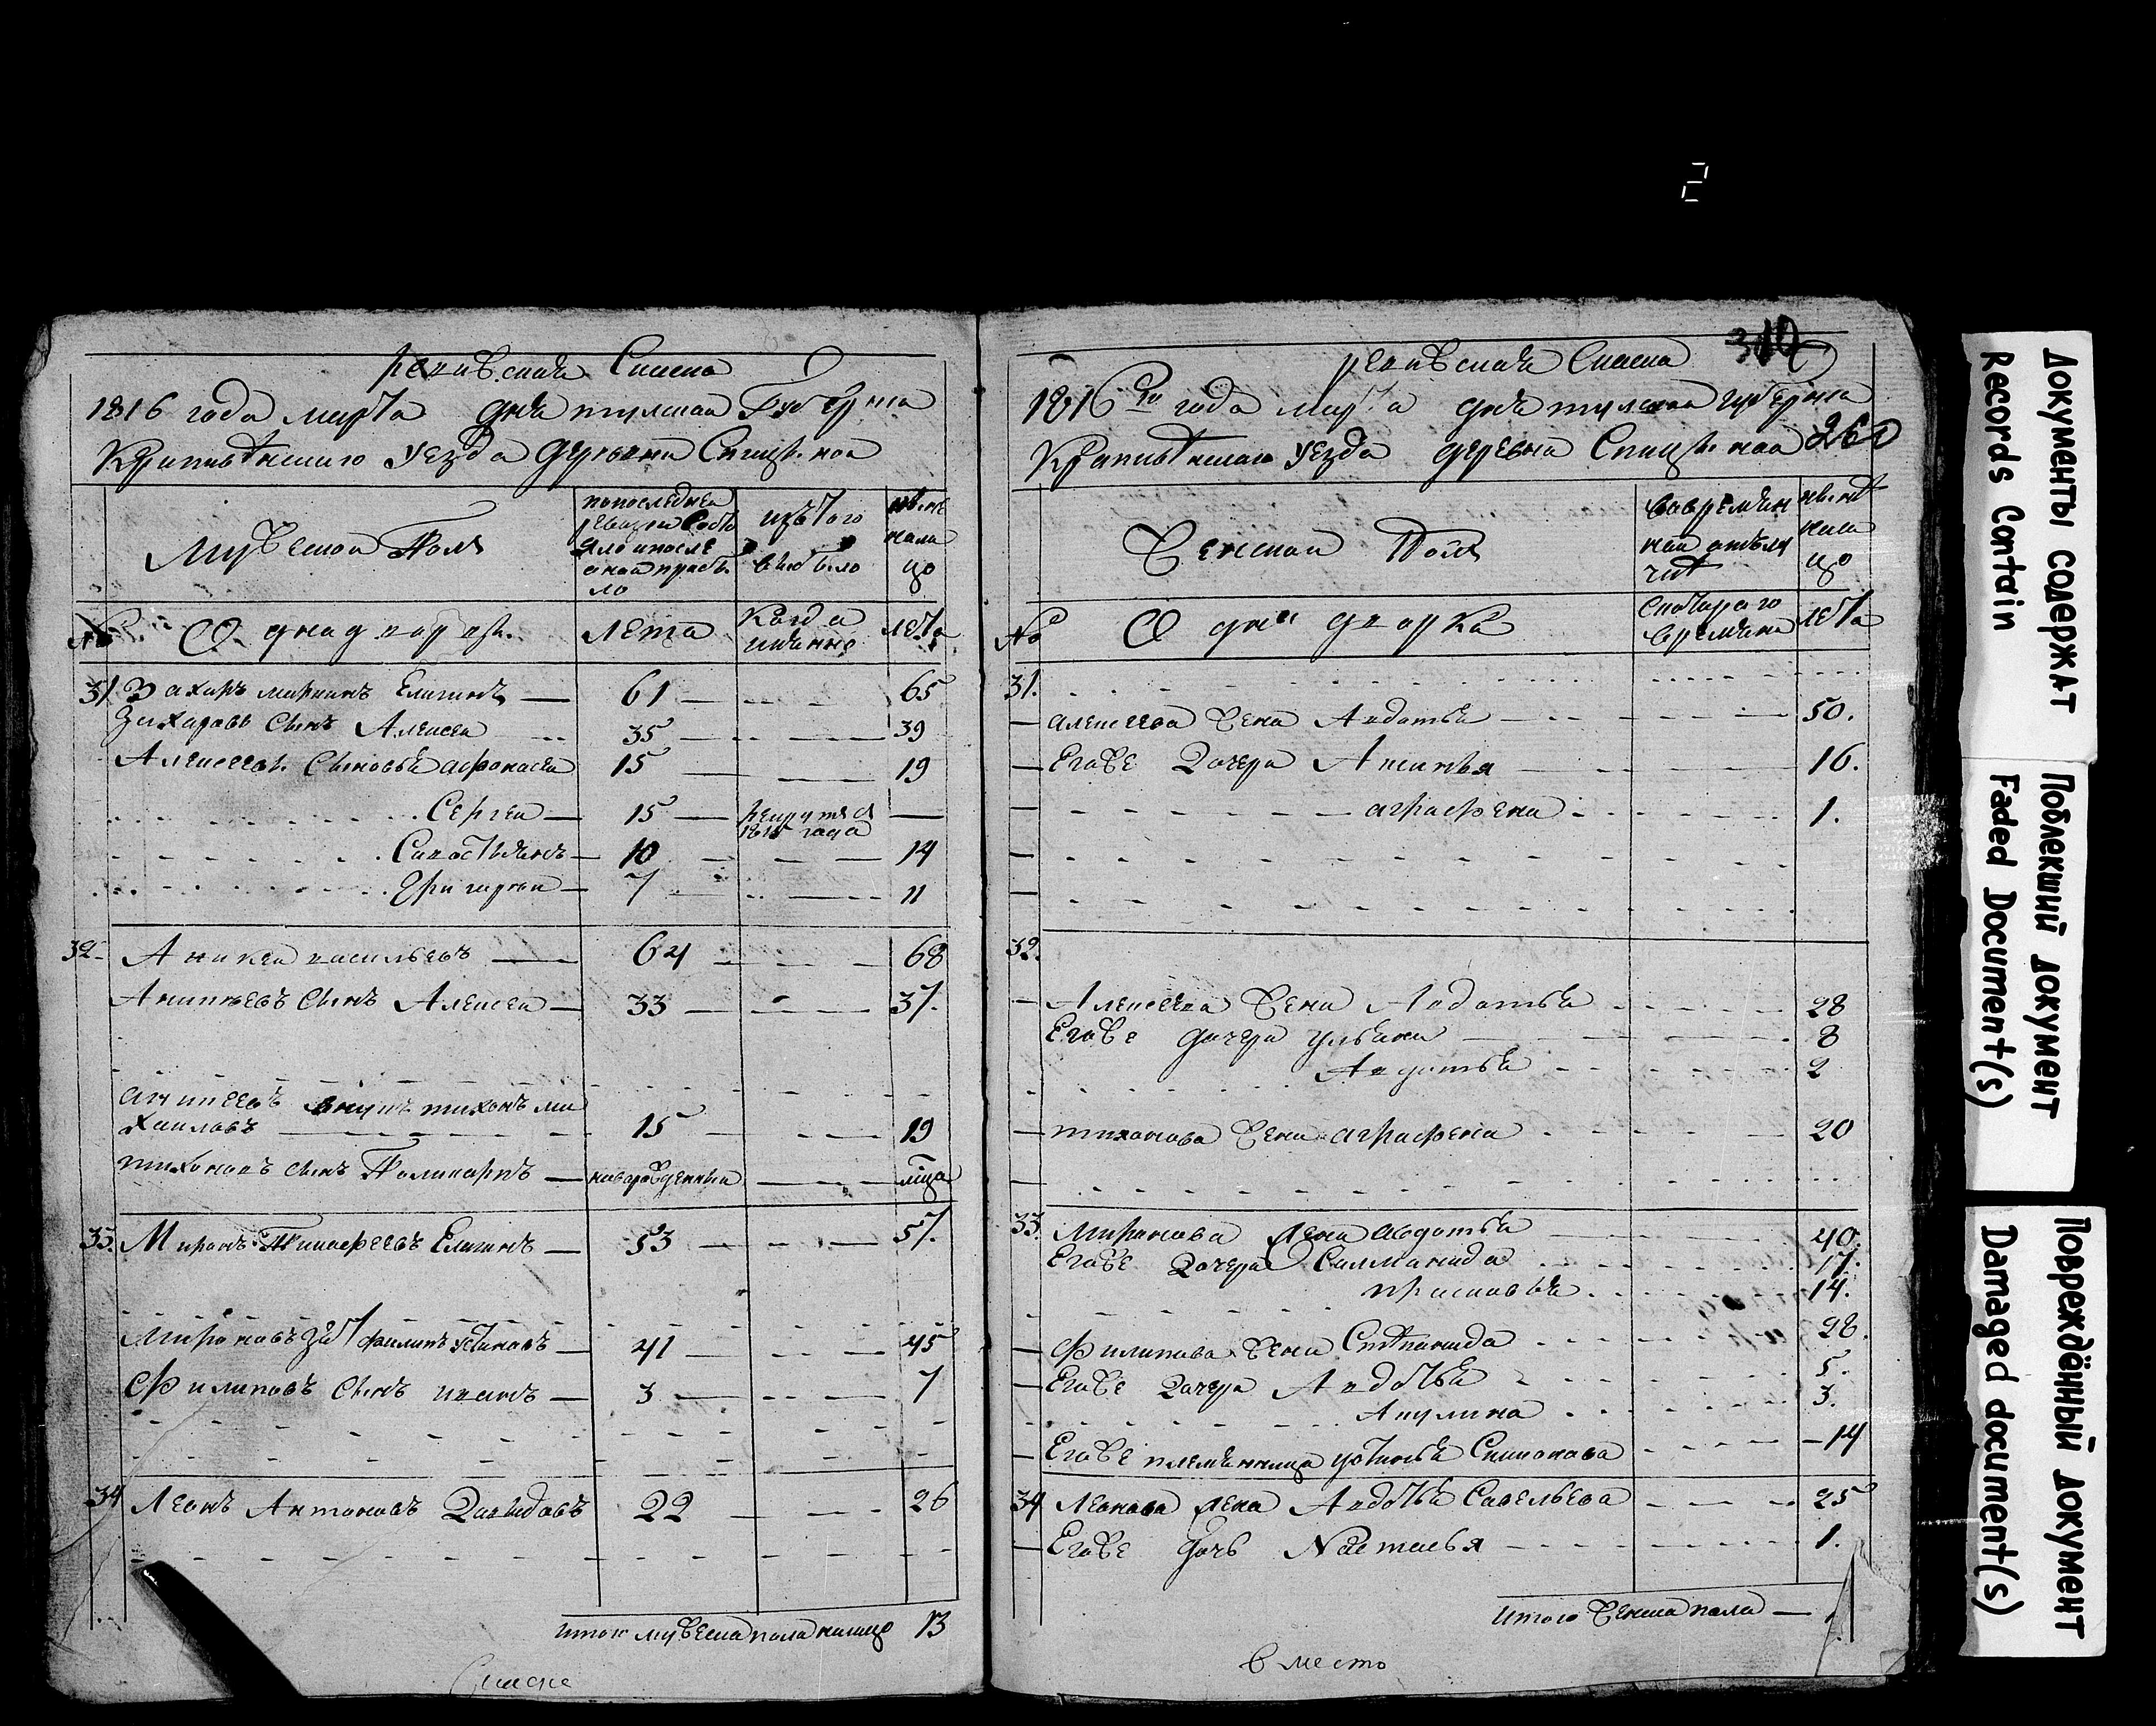 2
ревиская Сказка
1816 года марта дня тулская Губерня
Крапивѣнскаго уезда деревни Спицыной
Мужеска Полъ
попоследнеи
ревизи Состо
яло ипосле
оной прибы
ло
изътого
выбыло
ныне
нали
цо
№
Однадворцы
лета
Когда
имянно
лета
31 Захаръ маркинъ Елагинъ — 61 65
Захаровъ Сынъ Алексеи 35 39
Алексеевы Сыновья афонасеи 15 19
Сергеи — 15 — рекрутя в 1815 года —
Савостьянъ — 10 14
Григореи — 7 11
32 Аникеи васильевъ — 64 68
Аникѣевъ Сынъ Алексеи — 33 37.
аникеевъ внукъ тихонъ ми
хаиловъ 15 19
тихоновъ сынъ Поликарпъ — новарожденныи
33. Миронъ Тимофеевъ Елагинъ — 53 57.
Мироновъ зять филипъ устиновъ — 41 45
Филиповъ Сынъ иванъ — 3 7
34 Леонъ Антоновъ Давыдовъ 22 26
итого мужеска пола налицо 13
Сказке
ревиская Сказка
310
1816го года марта дня тулская губерня
Крапивѣнскаго уезда деревня Спицыной
260
Женскои Полъ
вовремян
нои отълу
чкѣ
нынѣ
нали
цо
№
Однадворка
Скотораго
времяни
лета
31.
алексеева жена Авдотья 50.
Егоже Дочери Аксинья 16.
аграфена 1.
32.
Алексеева жена Авдотья 28
Егоже дочери ульяна 8
Авдотья 2
тихонова жена аграфена 20
33 Миронова жена авдотья 40.
Егоже Дочери Саламанида 17.
прасковья 14.
Филипова жена Стѣпанида 28.
Егоже Дочери Авдотья 5.
Акулина 3.
Егоже племянница устинья Симонова 14
34 Леонова жена Авдотья Савельева 25
Егоже Дочь Настасья 1.
итого женска пола —
вместо
Документы содержат
Records Contain
Поблекший документ
Faded Document(s)
Повреждённый документ
Damaged document(s)